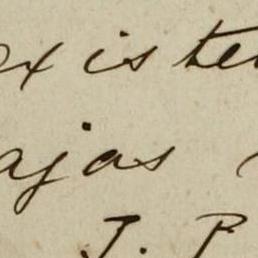 existe
ajas
J. P